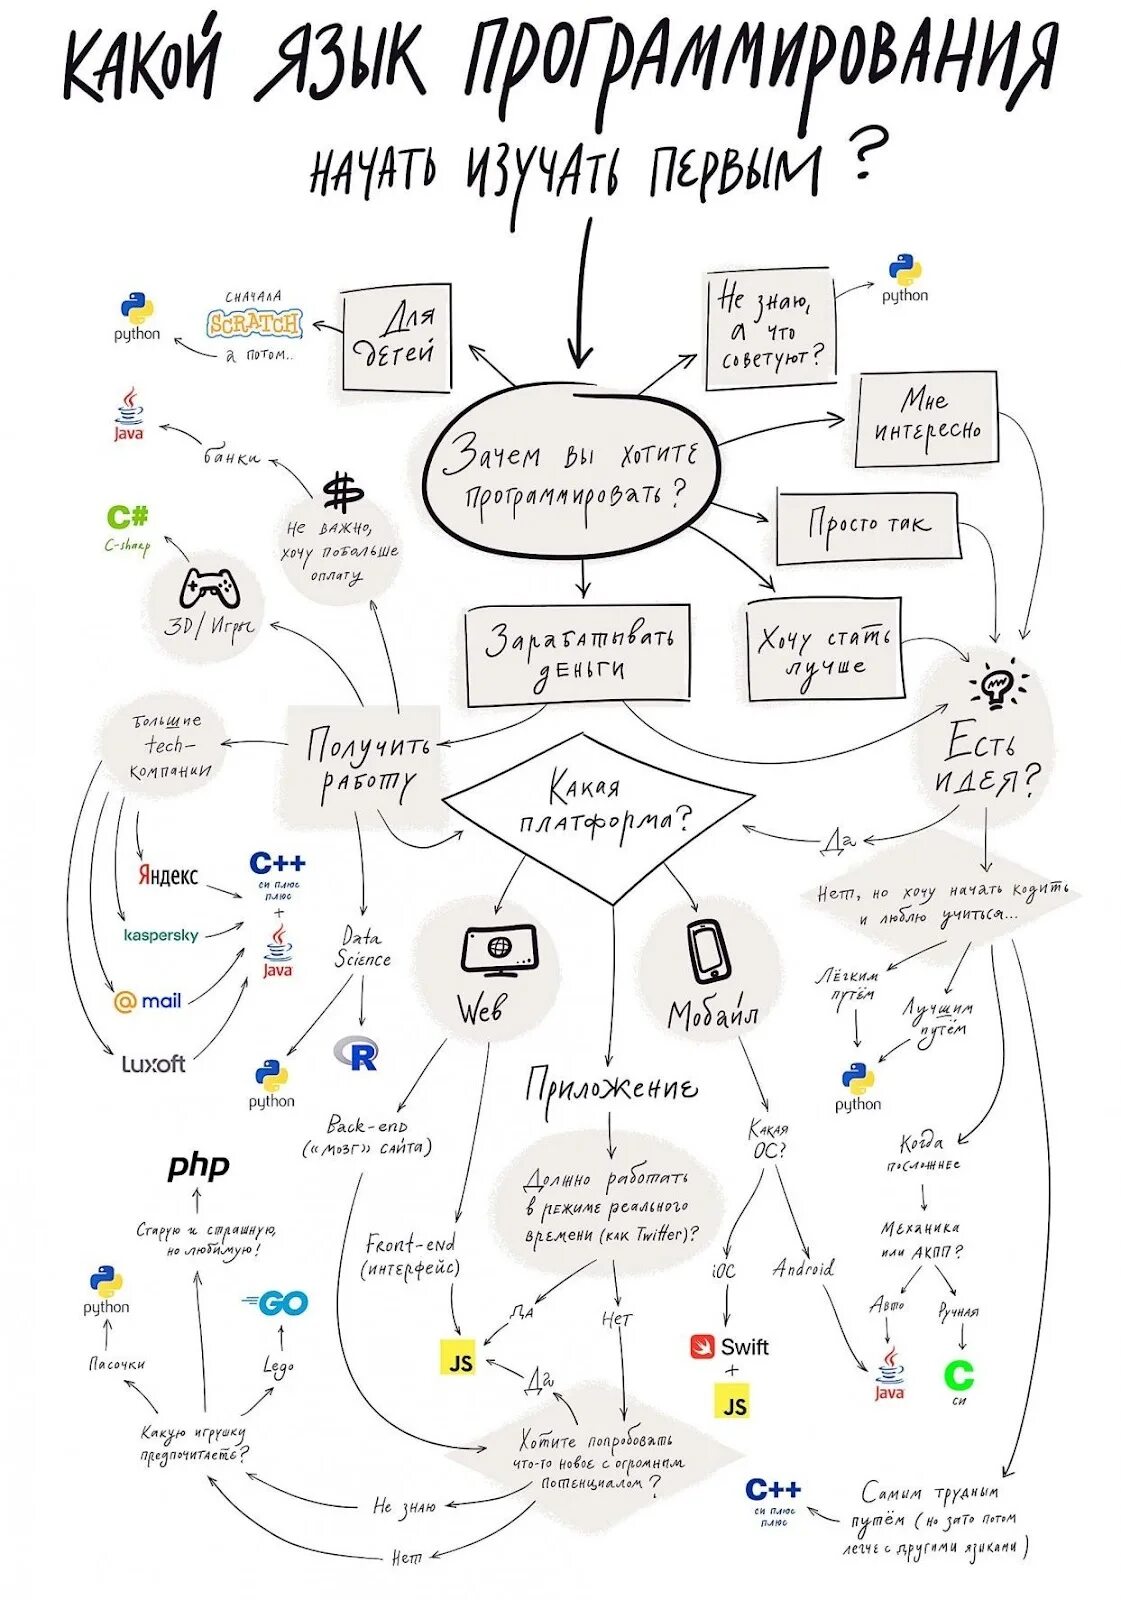 КАКОЙ ЯЗЫК ПРОГРАММИРОВАНИЯ
НАЧАТЬ ИЗУЧАТЬ ПЕРВЫМ?
python
СНАЧАЛА
SCRATCH
а потом..
Для
детей
Не знаю,
а что
советуют?
python
Мне
интересно
Зачем вы хотите
программировать?
Просто так
Хочу стать
лучше
Зарабатывать
деньги
Java
банки
$
Не важно,
хочу побольше
оплату
C#
C-sharp
3D/Игры
Большие
tech-
компании
Получить
работу
Какая
платформа?
Есть
идея?
Да
Нет, но хочу начать кодить
и люблю учиться...
Яндекс
kaspersky
@mail
Luxoft
C++
си плюс
плюс
+
Java
Data
Science
python
R
Web
Мобайл
Приложение
Лёгким
путём
Лучшим
путём
python
Back-end
(«мозг» сайта)
Front-end
(интерфейс)
Должно работать
в режиме реального
времени (как Twitter)?
Да
Нет
Какая
ОС?
iОС
Android
Swift
+
JS
Когда
посложнее
Механика
или АКПП?
Авто
Ручная
Java
C
си
php
Старую и страшную,
но любимую!
python
GO
Пасочки
Lego
Какую игрушку
предпочитаете?
JS
Да
Хотите попробовать
что-то новое с огромным
потенциалом?
Не знаю
Нет
C++
си плюс
плюс
Самым трудным
путём (но зато потом
легче с другими языками)